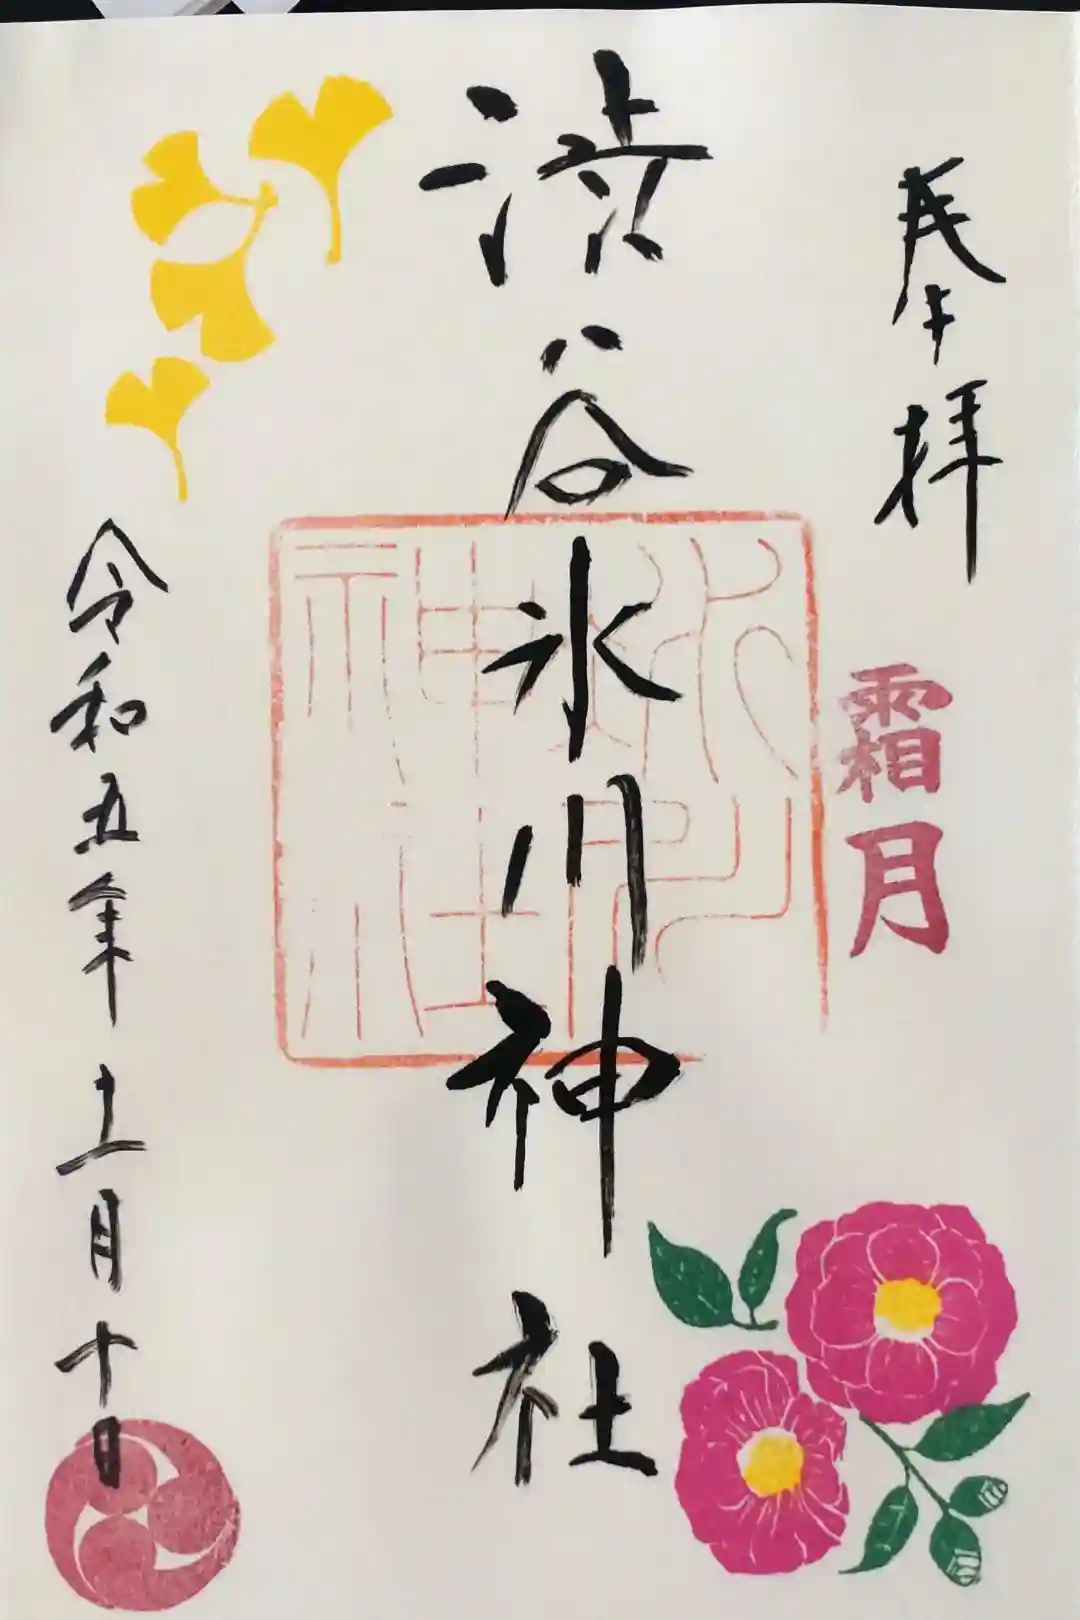 奉拝
霜月
渋谷氷川神社
氷川神社
令和五年十一月十日